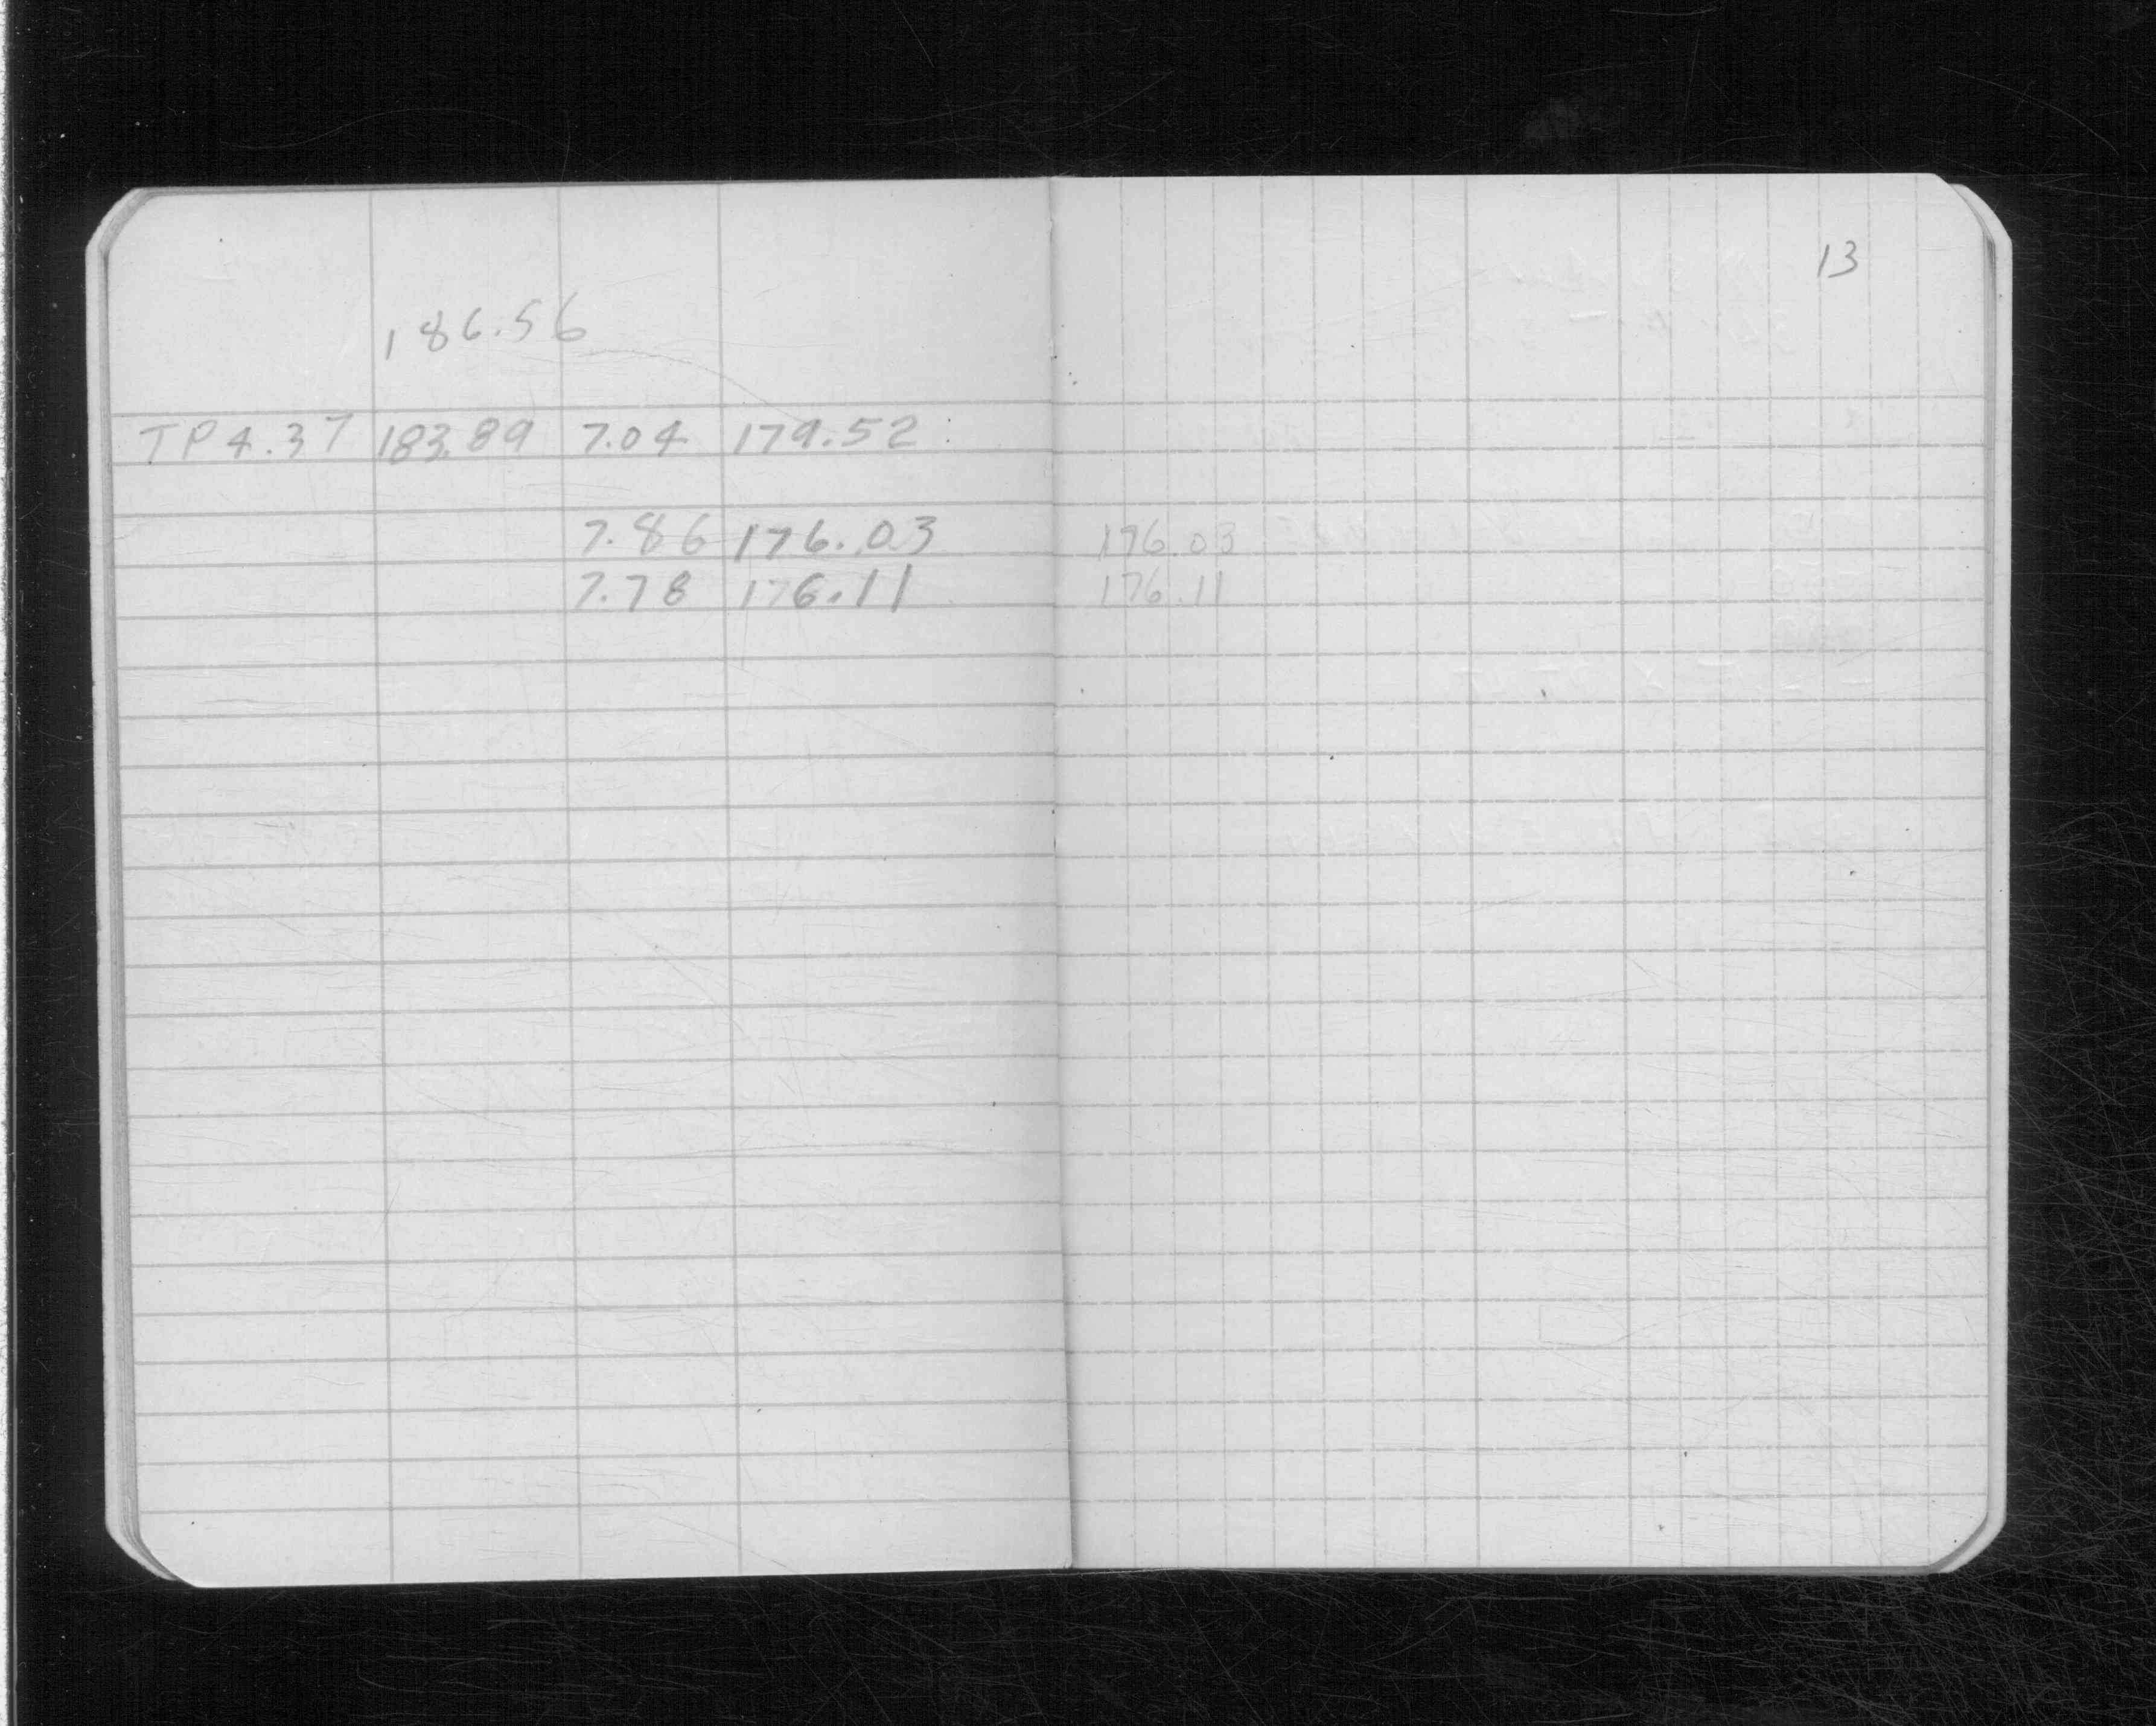 13
186.56
TP 4.37 183.89 7.04 179.52
7.86 176.03 176.03
7.78 176.11 176.11